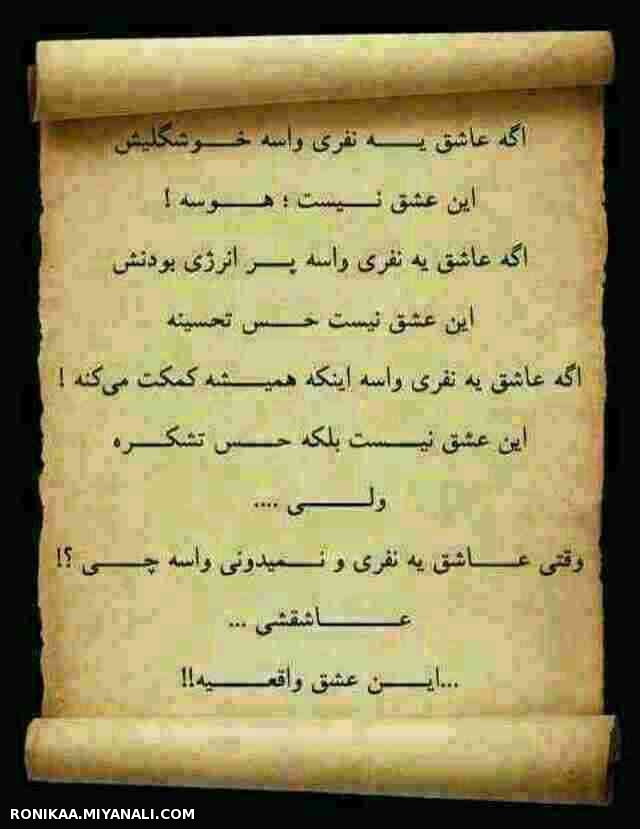 اگه عاشق یـــه نفری واسه خـــوشگلیش
این عشق نـــیست ؛ هـــوسه !
اگه عاشق یه نفری واسه پـــر انرژی بودنش
این عشق نیست حـــس تحسینه
اگه عاشق یه نفری واسه اینکه همیـــشه کمکت می‌کنه !
این عشق نیـــست بلکه حـــس تشکـــره
ولـــی ....
وقتی عـــاشق یه نفری و نـــمیدونی واسه چـــی ؟!
عـــاشقشی ...
...ایـــن عشق واقعـــیه!!
RONIKAA.MIYANALI.COM